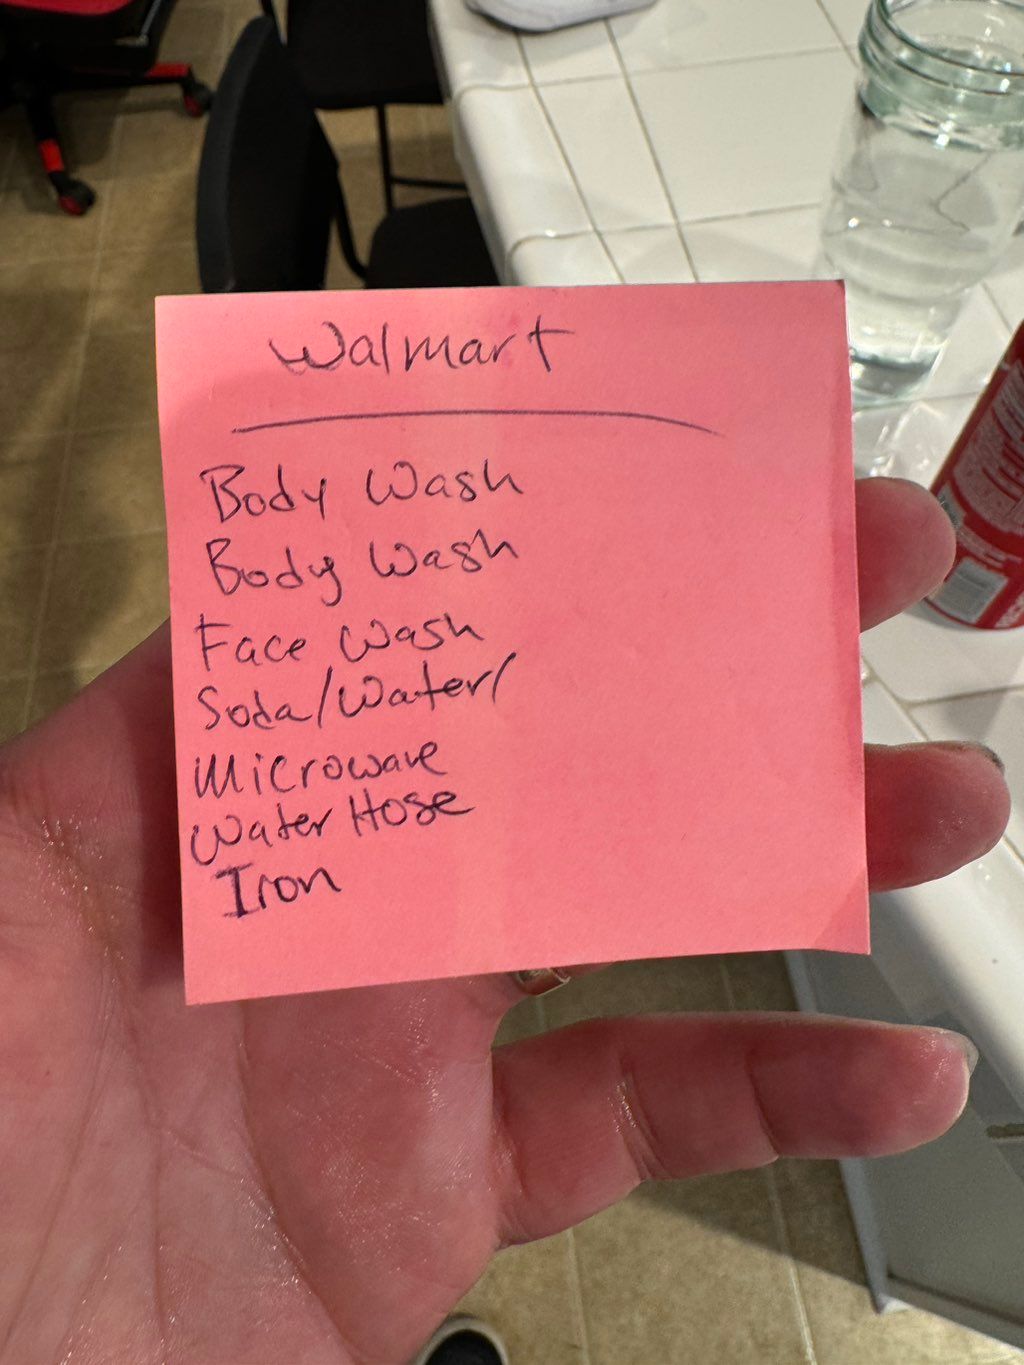 Walmart
Body Wash
Body Wash
Face Wash
Soda/Water/
Microwave
Water Hose
Iron